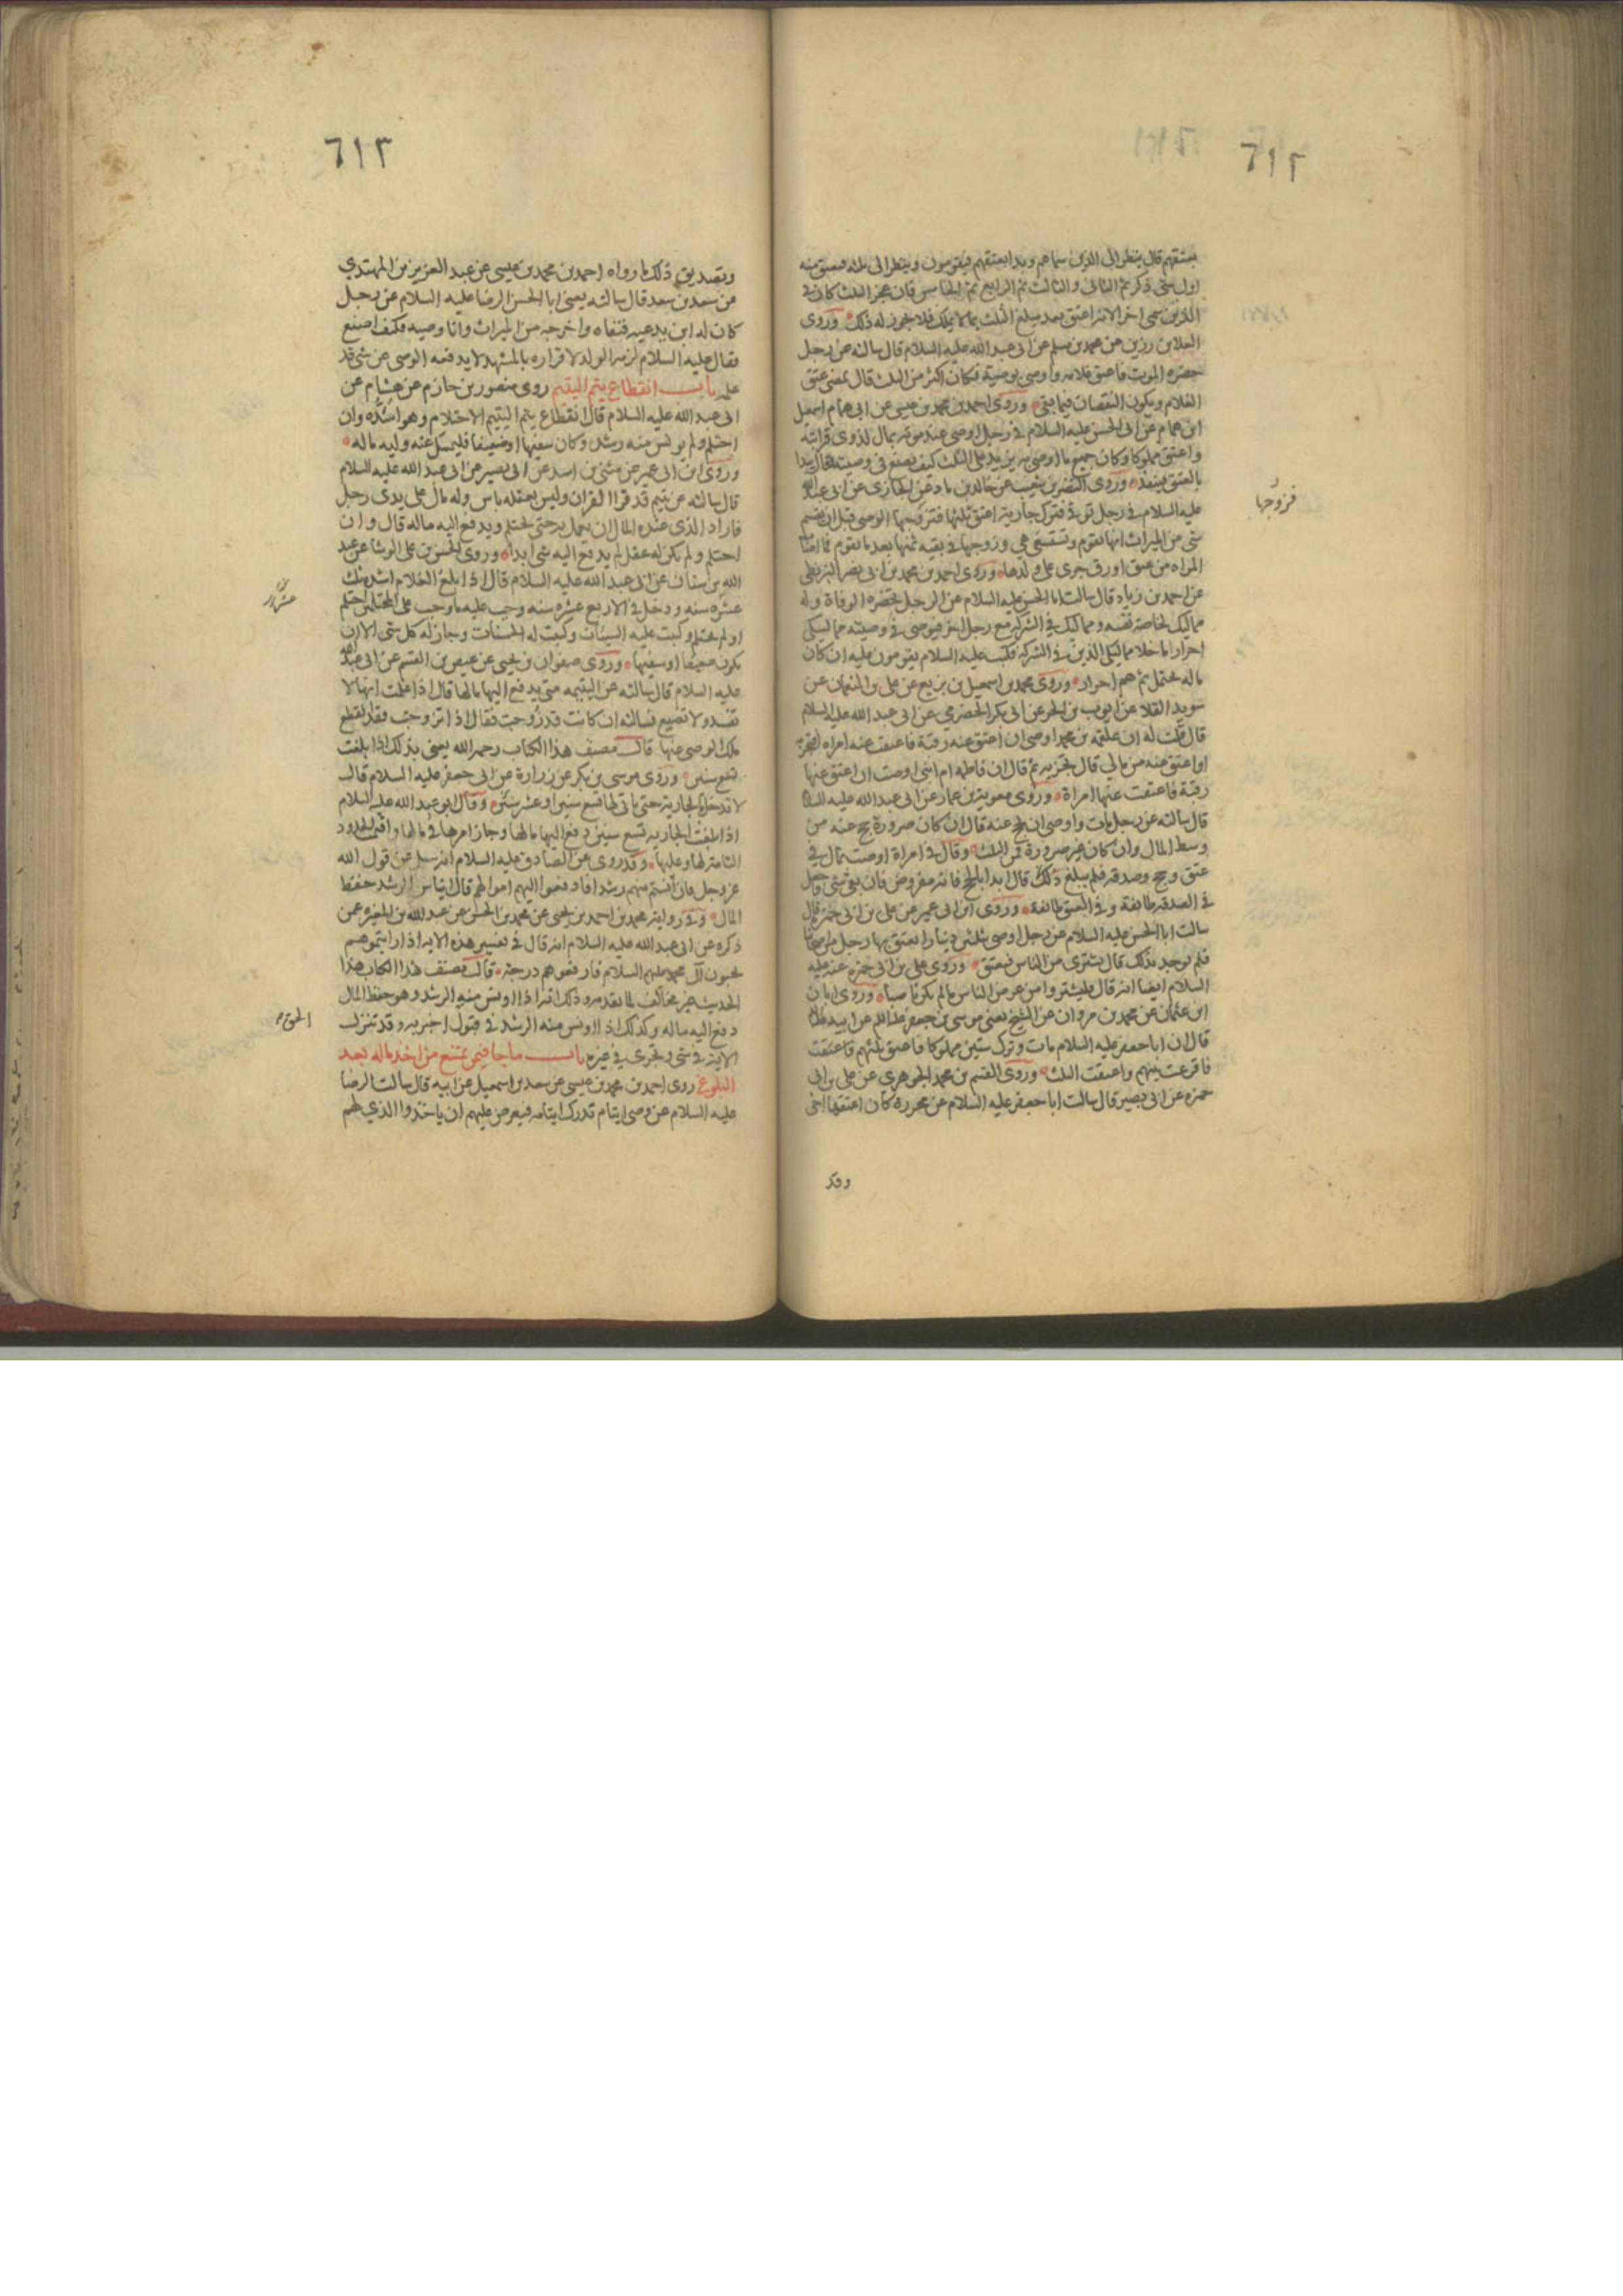 ٦١٢
بعتقهم قال ينظر الى الذين سماهم وبدا بعتقهم فيقومون وينظر الى ثلثه فيعتق منه
اول شي ذكر ثم الثانى والثالث ثم الرابع ثم الخامس فان عجز الثلث كان في
الذين سمى اخرا لانه اعتق بعد مبلغ الثلث بما لا يملك فلا يجوز له ذلك وروى
العلا بن رزين عن محمد بن مسلم عن ابى عبد الله عليه السلام قال سالته عن رجل
حضره الموت فاعتق غلامه واوصى بوصية فكان اكثر من الثلث قال يمضى عتق
الغلام ويكون النقصان فيما بقى وروى احمد بن محمد بن عيسى عن ابى همام اسمعيل
ابن همام عن ابى الحسن عليه السلام في رجل اوصى عند موته بمال لذوى قرابته
واعتق مملوكا وكان جميع ما اوصى به يزيد على الثلث كيف يصنع في وصيته قال يبدا
بالعتق فينفذه وروى النضر بن شعيب عن خالد بن ماد عن الجازى عن ابى عبد الله
عليه السلام في رجل توفى فترك جارية اعتق ثلثها فتزوجها الوصى قبل ان يقسم
شي من الميراث انها تقوم وتستسعى هي وزوجها في بقيه ثمنها بعد ما تقوم فما اصاب
المراه من عتق اورق جرى على ولدها وروى احمد بن محمد بن ابى نصر البزنطى
عن احمد بن زياد قال سالت ابا الحسن عليه السلام عن الرجل تحضره الوفاة وله
مماليك لخاصة نفسه ومماليك في الشركه مع رجل اخر فيوصى في وصيته مماليكى
احرار ما خلا مماليكى الذين في الشركه فكتب عليه السلام يقومون عليه ان كان
ماله يحتمل ثم هم احرار وروى محمد بن اسمعيل بن بزيع عن على بن النعمان عن
سويد القلا عن ايوب بن الحر عن ابى بكر الحضرمى عن ابى عبد الله عليه السلام
قال قلت له ان علقمه بن محمد اوصى ان اعتق عنه رقبة فاعتقت عنه امراه افتجزيه
او اعتق عنه من مالي قال تجزيه ثم قال ان فاطمه ام ابنى اوصت ان اعتق عنها
رقبة فاعتقت عنها امراة وروى معويه بن عمار عن ابى عبد الله عليه السلام
قال سالته عن رجل مات واوصى ان يحج عنه قال ان كان صرورة يحج عنه من
وسط المال وان كان غير صرورة فمن الثلث وقال في امراة اوصت بمال في
عتق وحج وصدقه فلم يبلغ ذلك قال ابدا بالحج فانه مفروض فان بقى شي فاجعل
في الصدقه طائفة وفي العتق طائفة وروى ابن ابى عمير عن على بن ابى حمزه قال
سالت ابا الحسن عليه السلام عن رجل اوصى بثلثين دينارا يعتق بها رجل من اصحابنا
فلم يوجد بذلك قال يشترى من الناس فيعتق وروى على بن ابى حمزه عنه عليه
السلام ايضا انه قال فليشتروا من عرض الناس ما لم يكن ناصبا وروى ابان
ابن عثمان عن محمد بن مروان عن الشيخ يعنى موسى بن جعفر عليهما السلم عن ابيه عليه السلم
قال ان ابا جعفر عليه السلام مات وترك ستين مملوكا فاعتق ثلثهم فاعتقت
فاقرعت بينهم واعتقت الثلث وروى القسم بن محمد الجوهرى عن على بن ابى
حمزه عن ابى بصير قال سالت ابا جعفر عليه السلام عن محررة كان اعتقها اخى
فزوجها
وقد
٦١٣
وتصديق ذلك ما رواه احمد بن محمد بن عيسى عن عبد العزيز بن المهتدي
عن سعد بن سعد قال سالته يعنى ابا الحسن الرضا عليه السلام عن رجل
كان له ابن يدعيه فنفاه واخرجه من الميراث وانا وصيه فكيف اصنع
فقال عليه السلام لزمه الولد لاقراره بالمشهد لا يدفعه الوصى عن شى قد
علمه باب انقطاع يتم اليتيم روى منصور بن حازم عن هشام عن
ابى عبد الله عليه السلام قال انقطاع يتم اليتيم الاحتلام وهو اشده وان
احتلم ولم يونس منه رشد وكان سفيها او ضعيفا فليمسك عنه وليه ماله
وروى ابن ابى عمير عن مثنى بن راشد عن ابى بصير عن ابى عبد الله عليه السلام
قال سالته عن يتيم قد قرا القران وليس بعقله باس وله مال على يدى رجل
فاراد الذى عنده المال ان يعمل به حتى يحتلم ويدفع اليه ماله قال وان
احتلم ولم يكن له عقل لم يدفع اليه شى ابدا وروى الحسن بن على الوشا عن عبد
الله بن سنان عن ابى عبد الله عليه السلام قال اذا بلغ الغلام اشده ثلث
عشره سنه ودخل في الاربع عشره سنه وجب عليه ما وجب على المحتلمين احتلم
او لم يحتلم وكتبت عليه السيئات وكتبت له الحسنات وجاز له كل شى الا ان
يكون ضعيفا او سفيها وروى صفوان بن يحيى عن عيص بن القسم عن ابى عبد الله
عليه السلام قال سالته عن اليتيمه متى يدفع اليها مالها قال اذا علمت انها لا
تفسد ولا تضيع فسالته ان كانت قد زوجت فقال اذا تزوجت فقد انقطع
ملك الوصى عنها قال مصنف هذا الكتاب رحمه الله يعنى بذلك اذا بلغت
تسع سنين وروى موسى بن بكر عن زرارة عن ابى جعفر عليه السلام قال
لا تدخل بالجارية حتى ياتى لها تسع سنين او عشر سنين وقال ابو عبد الله عليه السلام
اذا بلغت الجاريه تسع سنين دفع اليها مالها وجاز امرها في مالها واقيمت الحدود
التامة لها وعليها وقد روى عن الصادق عليه السلام انه سئل عن قول الله
عز وجل فان آنستم منهم رشدا فادفعوا اليهم اموالهم قال ايناس الرشد حفظ
المال وفي رواية محمد بن احمد بن يحيى عن محمد بن الحسين عن عبد الله بن المغيره عمن
ذكره عن ابى عبد الله عليه السلام انه قال في تفسير هذه الايه اذا رايتموهم
يحبون آل محمد عليهم السلام فارفعوهم درجة قال مصنف هذا الكتاب هذا
الحديث غير مخالف لما تقدمه وذلك انه اذا اونس منه الرشد وهو حفظ المال
دفع اليه ماله وكذلك اذا اونس منه الرشد في قبول اختبر به وقد تنزل
الاية في شى وتجرى في غيره باب ما جا فيمن يمتنع من اخذ ماله بعد
البلوغ روى احمد بن محمد بن عيسى عن سعد بن اسمعيل عن ابيه قال سالت الرضا
عليه السلام عن وصى ايتام تدرك ايتامه فيعرض عليهم ان ياخذوا الذي لهم
الحق